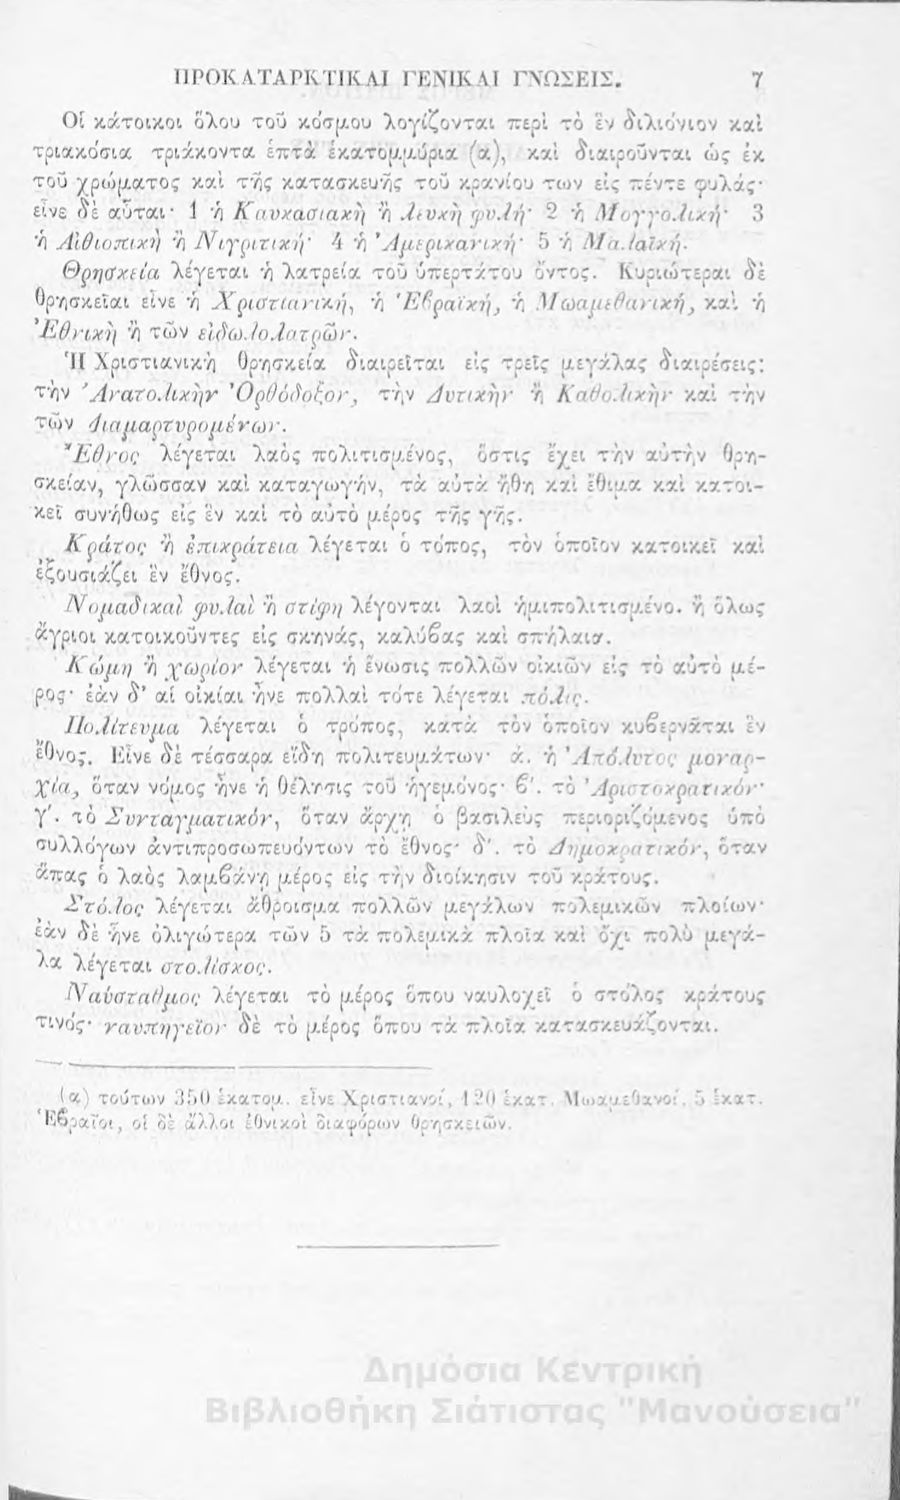 ΠΡΟΚΑΤΑΡΚΤΙΚΑΙ ΓΕΝΙΚΑΙ ΓΝΩΣΕΙΣ. 7
Οἱ κάτοικοι ὅλου τοῦ κόσμου λογίζονται περὶ τὸ ἓν διλιόνιον καὶ
τριακόσια τριάκοντα ἑπτὰ ἑκατομμύρια (α), καὶ διαιροῦνται ὡς ἐκ
τοῦ χρώματος καὶ τῆς κατασκευῆς τοῦ κρανίου των εἰς πέντε φυλάς·
εἶνε δὲ αὗται· 1 ἡ Καυκασιακὴ ἢ λευκὴ φυλή· 2 ἡ Μογγολική· 3
ἡ Αἰθιοπικὴ ἢ Νιγριτική· 4 ἡ Ἀμερικανική· 5 ἡ Μαλαϊκή.
Θρησκεία λέγεται ἡ λατρεία τοῦ ὑπερτάτου ὄντος. Κυριώτεραι δὲ
θρησκεῖαι εἶνε ἡ Χριστιανική, ἡ Ἑβραϊκή, ἡ Μωαμεθανική, καὶ ἡ
Ἐθνικὴ ἢ τῶν εἰδωλολατρῶν.
Ἡ Χριστιανικὴ θρησκεία διαιρεῖται εἰς τρεῖς μεγάλας διαιρέσεις:
τὴν Ἀνατολικὴν Ὀρθόδοξον, τὴν Δυτικὴν ἢ Καθολικὴν καὶ τὴν
τῶν Διαμαρτυρομένων.
Ἔθνος λέγεται λαὸς πολιτισμένος, ὅστις ἔχει τὴν αὐτὴν θρη-
σκείαν, γλῶσσαν καὶ καταγωγήν, τὰ αὐτὰ ἤθη καὶ ἔθιμα καὶ κατοι-
κεῖ συνήθως εἰς ἓν καὶ τὸ αὐτὸ μέρος τῆς γῆς.
Κράτος ἢ ἐπικράτεια λέγεται ὁ τόπος, τὸν ὁποῖον κατοικεῖ καὶ
ἐξουσιάζει ἓν ἔθνος.
Νομαδικαὶ φυλαὶ ἢ στίφη λέγονται λαοὶ ἡμιπολιτισμένοι ἢ ὅλως
ἄγριοι κατοικοῦντες εἰς σκηνάς, καλύβας καὶ σπήλαια.
Κώμη ἢ χωρίον λέγεται ἡ ἕνωσις πολλῶν οἰκιῶν εἰς τὸ αὐτὸ μέ-
ρος· ἐὰν δ' αἱ οἰκίαι ἦνε πολλαὶ τότε λέγεται πόλις.
Πολίτευμα λέγεται ὁ τρόπος, κατὰ τὸν ὁποῖον κυβερνᾶται ἓν
ἔθνος. Εἶνε δὲ τέσσαρα εἴδη πολιτευμάτων· ά. ἡ Ἀπόλυτος μοναρ-
χία, ὅταν νόμος ἦνε ἡ θέλησις τοῦ ἡγεμόνος· β'. τὸ Ἀριστοκρατικόν·
γ'. τὸ Συνταγματικόν, ὅταν ἄρχῃ ὁ βασιλεὺς περιοριζόμενος ὑπὸ
συλλόγων ἀντιπροσωπευόντων τὸ ἔθνος· δ'. τὸ Δημοκρατικόν, ὅταν
ἅπας ὁ λαὸς λαμβάνῃ μέρος εἰς τὴν διοίκησιν τοῦ κράτους.
Στόλος λέγεται ἄθροισμα πολλῶν μεγάλων πολεμικῶν πλοίων·
ἐὰν δὲ ἦνε ὀλιγώτερα τῶν 5 τὰ πολεμικὰ πλοῖα καὶ ὄχι πολὺ μεγά-
λα λέγεται στολίσκος.
Ναύσταθμος λέγεται τὸ μέρος ὅπου ναυλοχεῖ ὁ στόλος κράτους
τινός· ναυπηγεῖον δὲ τὸ μέρος ὅπου τὰ πλοῖα κατασκευάζονται.
(α) τούτων 350 ἑκατομ. εἶνε Χριστιανοί, 120 ἑκατ. Μωαμεθανοί, 5 ἑκατ.
Ἑβραῖοι, οἱ δὲ ἄλλοι ἐθνικοὶ διαφόρων θρησκειῶν.
Δημόσια Κεντρική
Βιβλιοθήκη Σιάτιστας "Μανούσεια"